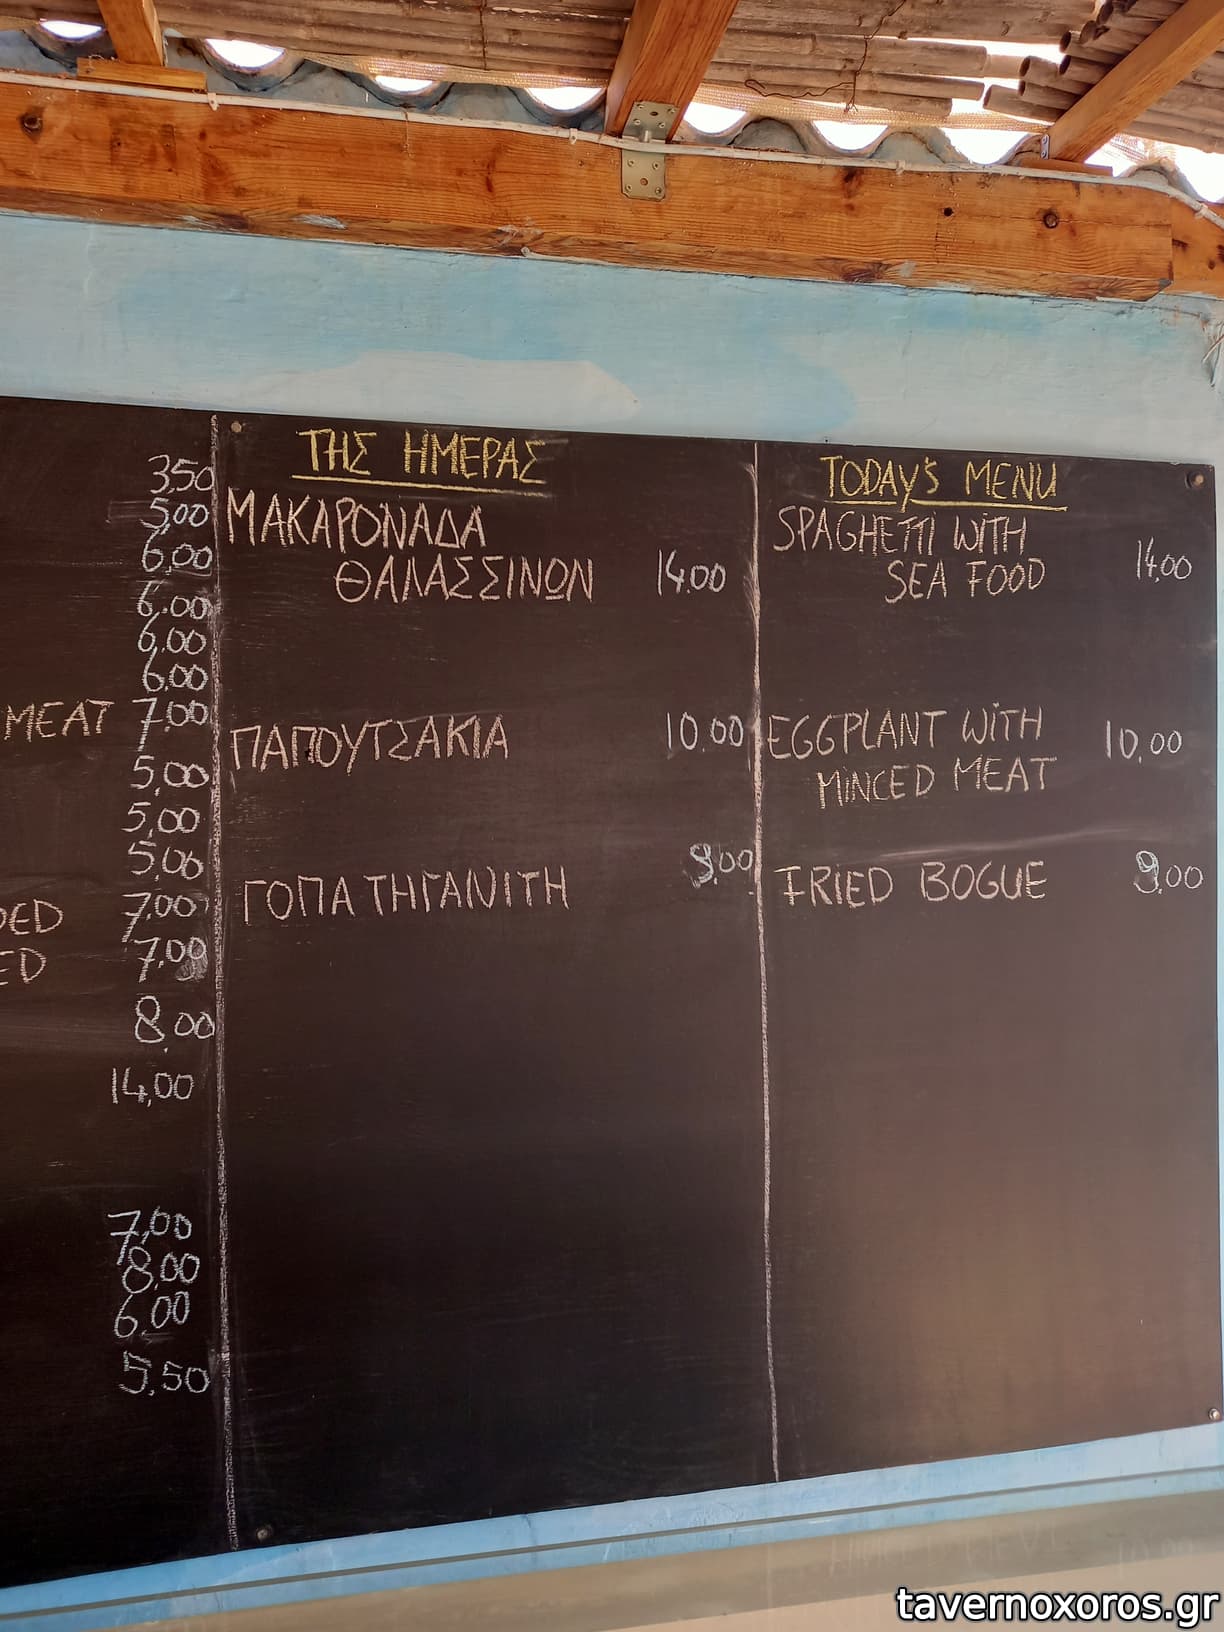 3,50
5,00
6,00
6.00
6.00
6.00
MEAT 7.00
5,00
5,00
5,00
7,00
7,00
8,00
14,00
7,00
8,00
6,00
5,50
ΤΗΣ ΗΜΕΡΑΣ
ΜΑΚΑΡΟΝΑΔΑ
ΘΑΛΑΣΣΙΝΩΝ 14.00
ΠΑΠΟΥΤΣΑΚΙΑ 10.00
ΓΟΠΑ ΤΗΓΑΝΙΤΗ 9,00
TODAY'S MENU
SPAGHETTI WITH
SEA FOOD 14,00
EGGPLANT WITH 10,00
MINCED MEAT
FRIED BOGUE 9,00
tavernoxoros.gr